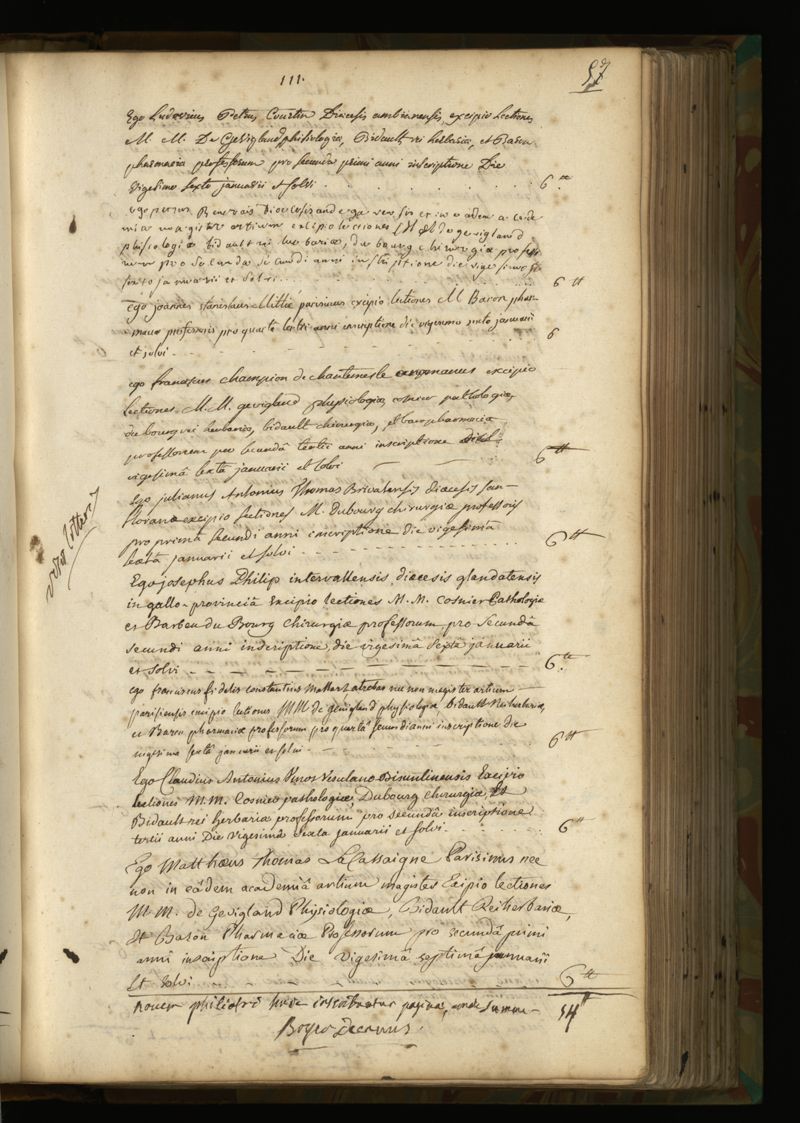 111.
57
Ego Ludovicus Petrus Courtin Diocesis ambianensis excipio lectiones
M. M. De Gevigland phisiologiæ, Bidault rei herbariæ, et Baron
pharmaciæ professorum pro secunda primi anni inscriptione Die
vigesima sexta januarii et solvi . . . . . 6 ᵗᵗ
ego petrus diocesis andegavensis et in eadem acade-
mia magister artium excipio lectiones M. M. de gevigland
phisiologiæ bidault rei herbariæ, dubourg chirurgiæ profess-
orum pro secunda secundi anni inscriptione die vigesima
sexta januarii et solvi . . . . . 6 ᵗᵗ
Ego joannes stanislaus Mittié parisinus excipio lectiones M Baron phar-
maciæ professoris pro quarta tertii anni inscriptione die vigesima sexta januarii
et solvi - - - 6
ego franciscus champion de chantemesle excipio
lectiones M. M. gevigland physiologiæ, cosnier pathologiæ,
dubourg rei herbariæ, bidault chirurgiæ, et baron pharmaciæ
professorum pro secundâ tertii anni inscriptione
vigesimâ sexta januarii et solvi — — 6 ᵗᵗ
Ego julianus Antonius Thomas Brivatensis diocesis san-
floranæ excipio lectiones M. Dubourg chirurgiæ professoris
pro primâ secundi anni inscriptione die vigesimâ
sextâ januarii et solvi - - - - - 6 ᵗᵗ
vide litter.
Ego josephus Philip intervallensis diœcesis glandatensis
in gallo-provinciâ Excipio lectiones M. M. Cosnier Pathologiæ
et Barbeu du Bourg Chirurgiæ professorum pro secundâ
secundi anni inscriptione, die vigesimâ sextâ januarii
et solvi — — — — — 6 ᵗᵗ
ego franciscus fidelis constantinus atrebas nec non magister artium
parisiensis excipio lectiones MM de gevigland physiologiæ Bidault Rei herbariæ,
et Baron pharmaciæ professorum pro quartâ secundi anni inscriptione die
vigesima sextâ januarii et solvi - - - 6 ᵗᵗ
Ego Claudius Antonius Vesulano Bisuntinensis Excipio
lectiones M.M. Cosnier pathologiæ, Dubourg chirurgiæ, Et
Bidault rei herbariæ professorum pro secundâ inscriptione
tertii anni Die vigesimâ sexta januarii et solvi . . . 6 ᵗᵗ
Ego Matthæus Thomas LaCassaigne Parisinus nec
non in eâdem academiâ artium magister Excipio lectiones
M. M. de Gevigland Physiologiæ, Bidault Rei herbariæ,
Et Baron Pharmaciæ Professorum pro secundâ primi
anni inscriptione Die vigesimâ septimâ januarii
Et solvi 6 ᵗᵗ
novem philiatri hac inscribuntur pagina, unde summa - 54 ᵗᵗ
Boyer Decanus.